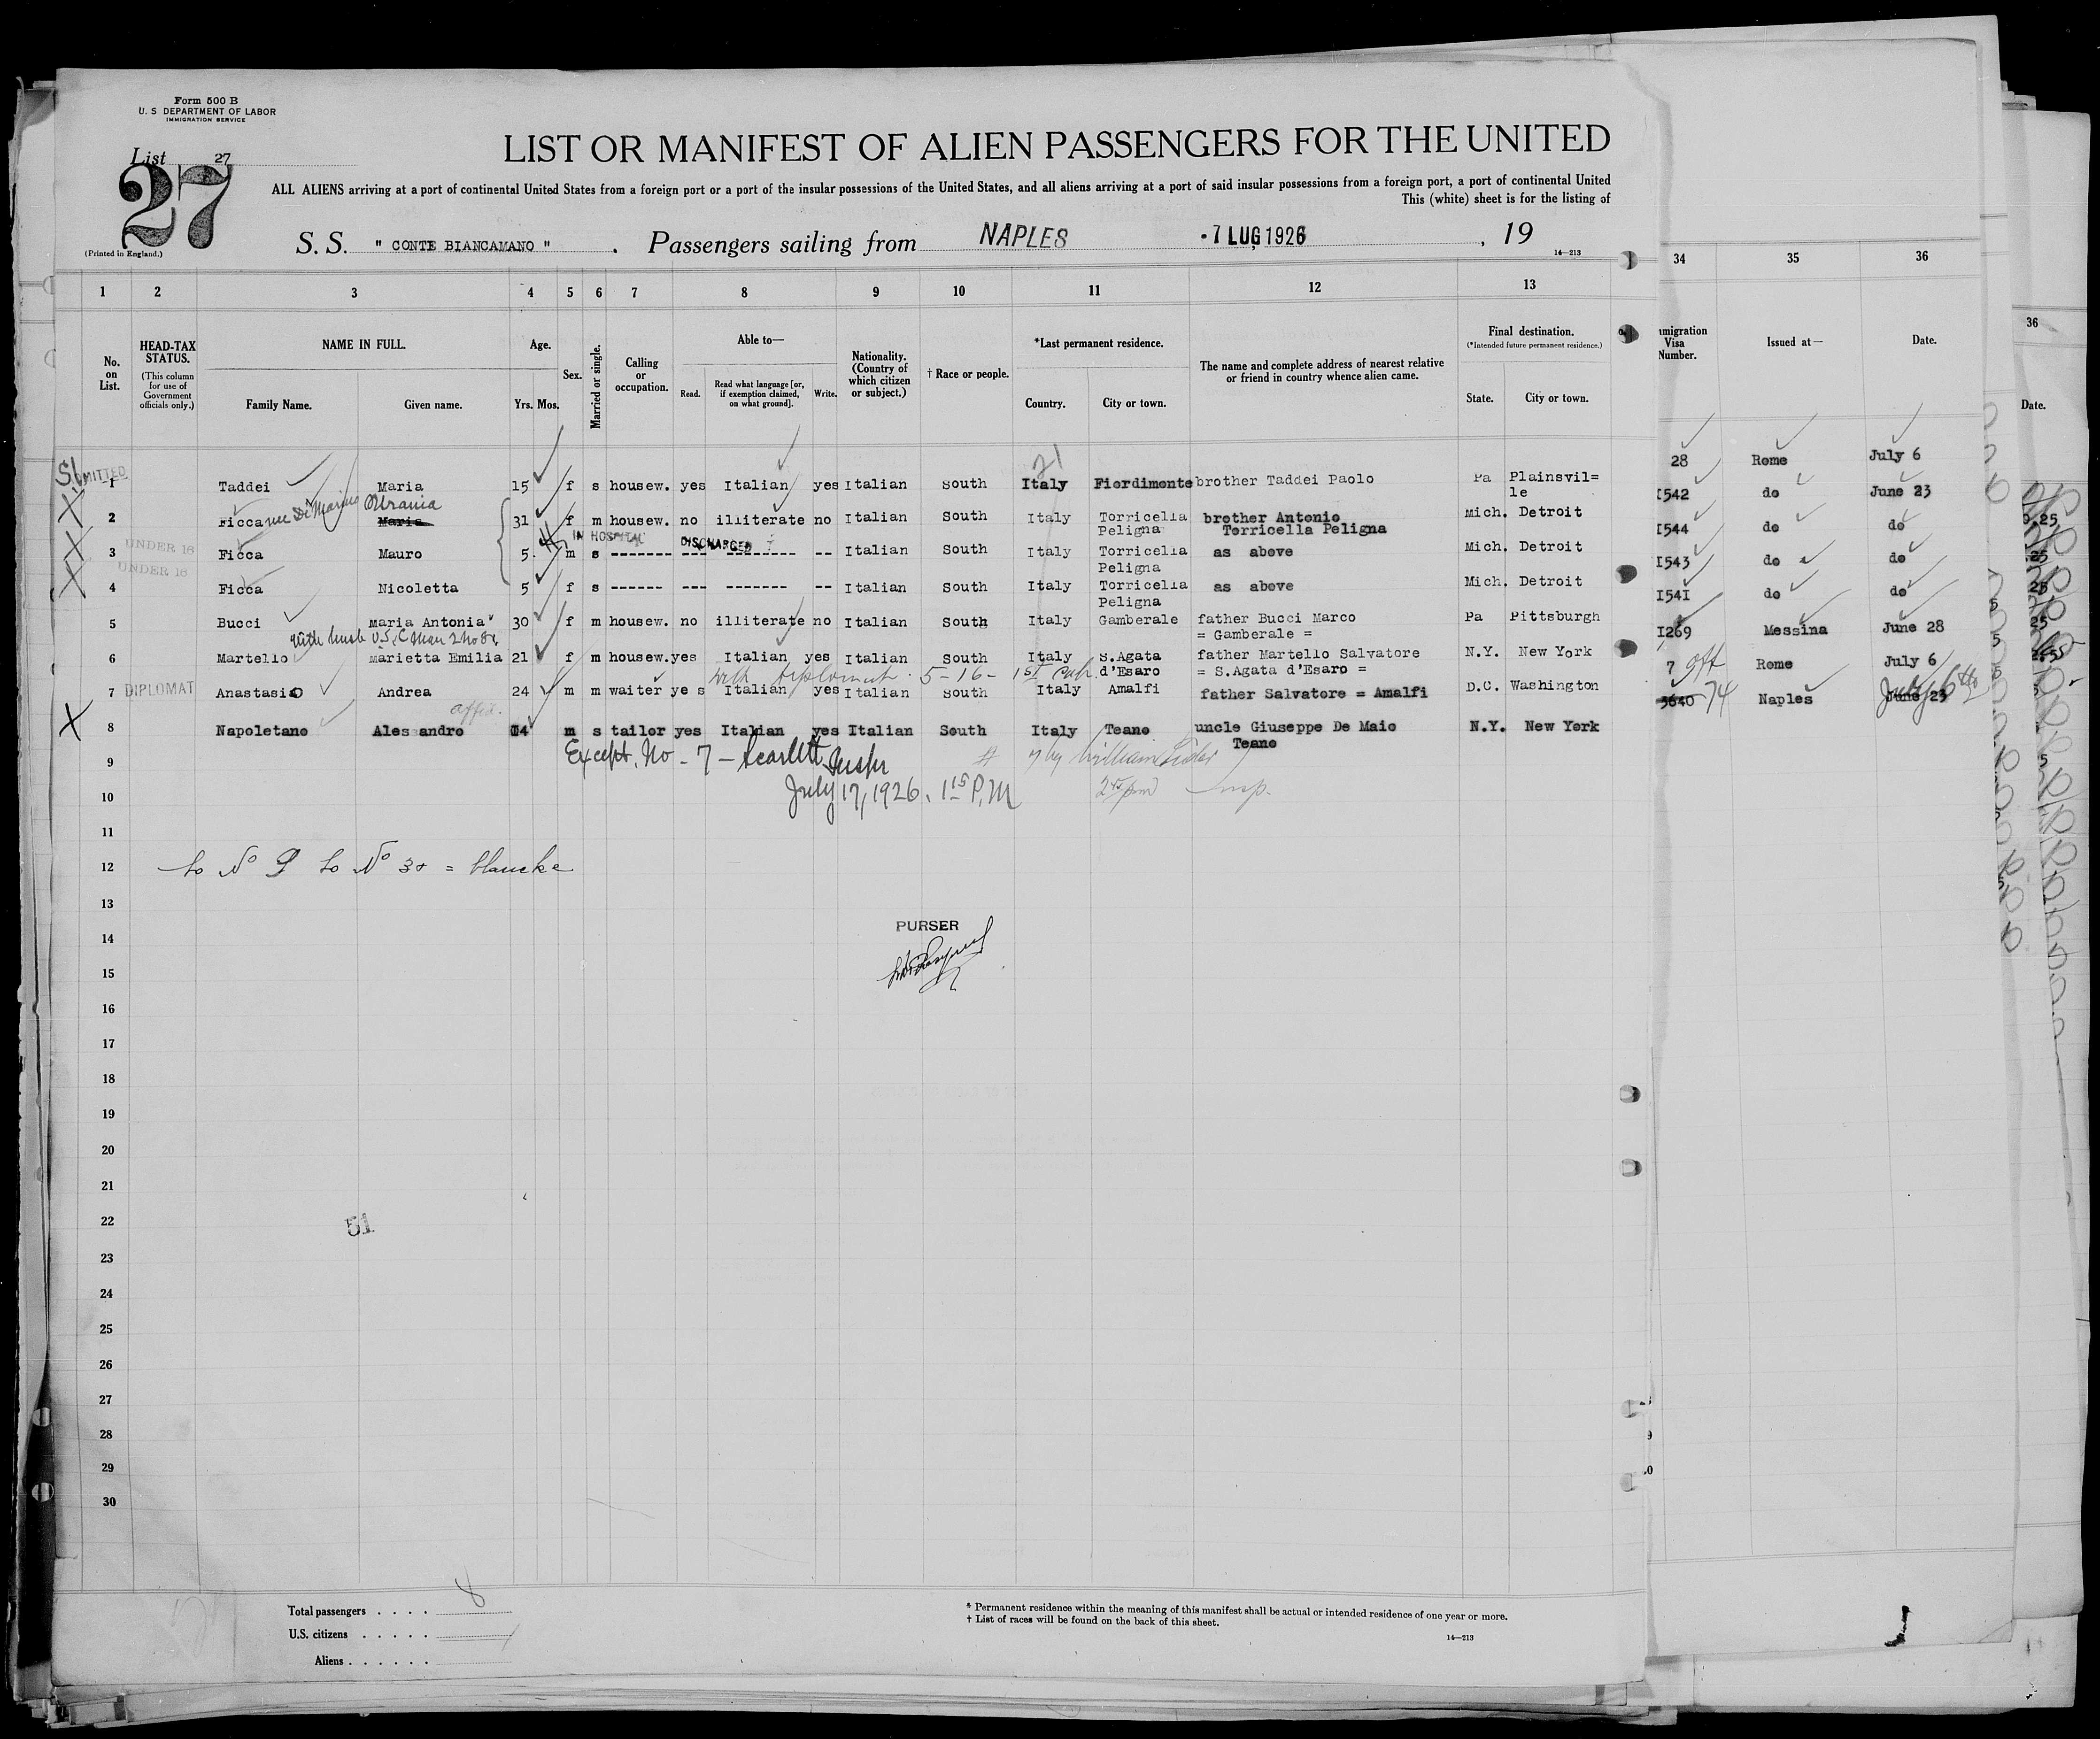 Form 500 B
U. S DEPARTMENT OF LABOR
IMMIGRATION SERVICE
List 27
27
(Printed in England.)
LIST OR MANIFEST OF ALIEN PASSENGERS FOR THE UNITED
ALL ALIENS arriving at a port of continental United States from a foreign port or a port of the insular possessions of the United States, and all aliens arriving at a port of said insular possessions from a foreign port, a port of continental United
This (white) sheet is for the listing of
S. S. " CONTE BIANCAMANO " . Passengers sailing from NAPLES - 7 LUG 1926 , 19
14—213
1 2 3 4 5 6 7 8 9 10 11 12 13 34 35 36
No. on List.
HEAD-TAX STATUS.
(This column for use of Government officials only.)
NAME IN FULL.
Family Name. Given name.
Age.
Yrs. Mos.
Sex.
Married or single.
Calling or occupation.
Able to—
Read. Read what language [or, if exemption claimed, on what ground]. Write.
Nationality. (Country of which citizen or subject.)
† Race or people.
*Last permanent residence.
Country. City or town.
The name and complete address of nearest relative or friend in country whence alien came.
Final destination.
(*Intended future permanent residence.)
State. City or town.
Visa Number.
Issued at—
Date.
36
Date.
1 Taddei Maria 15 f s housew. yes Italian yes Italian South Italy Fiordimonte brother Taddei Paolo Pa Plainsvil=
le
28 Rome July 6
nee Di Marino Urania
2 Ficca Maria 31 f m housew. no illiterate no Italian South Italy Torricella Peligna brother Antonio Mich. Detroit
Torricella Peligna
1542 do June 23
IN HOSPITAL DISCHARGED
UNDER 16
3 Ficca Mauro 5 m s ------- --- -------- -- Italian South Italy Torricella Peligna as above Mich. Detroit
1544 do do
UNDER 16
4 Ficca Nicoletta 5 f s ------ --- ------- -- Italian South Italy Torricella Peligna as above Mich. Detroit
1543 do do
1541 do do
5 Bucci Maria Antonia 30 f m housew. no illiterate no Italian South Italy Gamberale father Bucci Marco Pa Pittsburgh
= Gamberale =
1269 Messina June 28
with husb U.S.C.
6 Martello Marietta Emilia 21 f m housew. yes Italian yes Italian South Italy S.Agata d'Esaro father Martello Salvatore N.Y. New York
= S.Agata d'Esaro =
7 Rome July 6
with diplomat. 5-16- 1st Cab.
7 DIPLOMAT Anastasio Andrea 24 m m waiter ye s Italian yes Italian South Italy Amalfi father Salvatore = Amalfi D.C. Washington
3640 74 Naples June 23 July 6th
affid.
8 Napoletano Alessandro 14 m s tailor yes Italian yes Italian South Italy Teano uncle Giuseppe De Maio N.Y. New York
Teano
9
Except. No - 7 - Scarlett Inspr
# 7 by William
10
July 17, 1926. 1 15 P.M
2 45 pm Insp.
11
12 to No 9 to No 30 = blancke
13
14
PURSER
15
16
17
18
19
20
21
22
51
23
24
25
26
27
28
29
30
Total passengers . . . . 8
U.S. citizens . . . . .
Aliens . . . . . .
* Permanent residence within the meaning of this manifest shall be actual or intended residence of one year or more.
† List of races will be found on the back of this sheet.
14—213